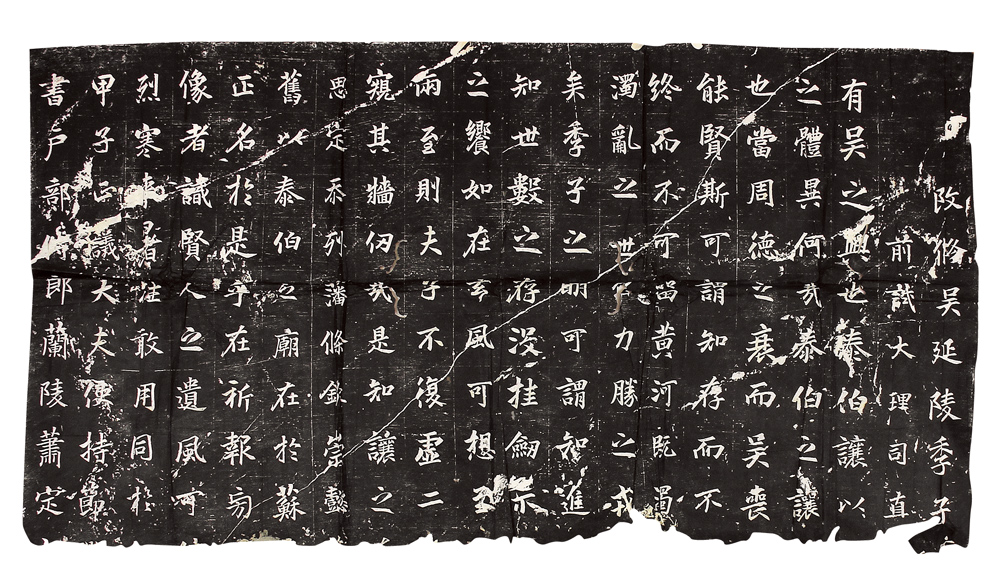 改脩吴延陵季子
前試大理司直
有吴之興也泰伯讓以
之體異何㢤泰伯之讓
也當周德之衰而吴喪
能賢斯可謂知存而不
終而不可留黄河既濁
濁亂之世力勝之戎
矣季子之明可謂智進
知世數之存没挂劒示
之饗如在玄風可想
兩至則夫子不復虚二
窺其牆仞㢤是知讓之
思定忝列藩條欽崇懿
舊以泰伯之廟在於蘇
正名於是乎在祈報
像者識賢人之遺風
烈寒暑往敢用同於
甲子正議大夫使持節
書户部侍郎蘭陵蕭定